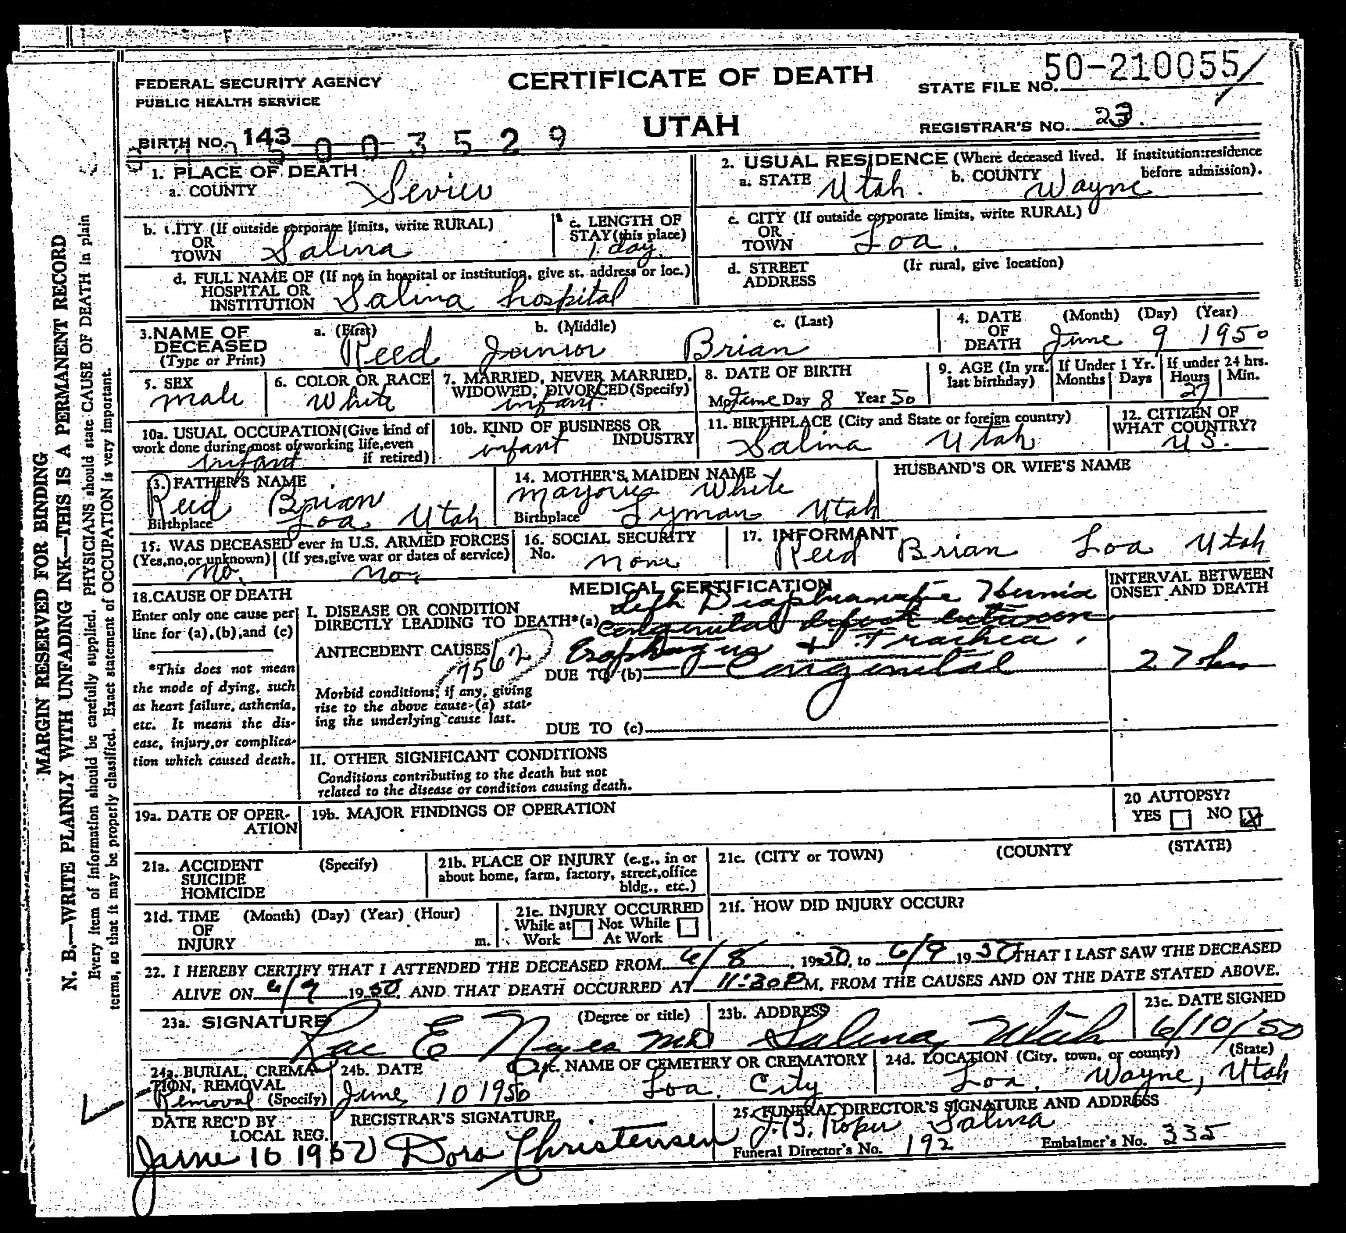 FEDERAL SECURITY AGENCY
PUBLIC HEALTH SERVICE
CERTIFICATE OF DEATH
UTAH
STATE FILE NO. 50-210055
REGISTRAR'S NO. 23.
BIRTH NO. 143 5003529
1. PLACE OF DEATH
a. COUNTY Sevier
2. USUAL RESIDENCE (Where deceased lived. If institution:residence before admission).
a. STATE Utah. b. COUNTY Wayne
b. CITY (If outside corporate limits, write RURAL) OR TOWN Salina
c. LENGTH OF STAY (this place) 1 day.
c. CITY (If outside corporate limits, write RURAL) OR TOWN Loa.
d. FULL NAME OF (If not in hospital or institution, give st. address or loc.) HOSPITAL OR INSTITUTION Salina hospital
d. STREET ADDRESS (If rural, give location)
3. NAME OF DECEASED (Type or Print) a. (First) Reed b. (Middle) Junior c. (Last) Brian
4. DATE OF DEATH (Month) (Day) (Year) June 9 1950
5. SEX male
6. COLOR OR RACE White
7. MARRIED, NEVER MARRIED, WIDOWED, DIVORCED (Specify) infant.
8. DATE OF BIRTH Mo. June Day 8 Year 50
9. AGE (In yrs. last birthday) If Under 1 Yr. Months Days If under 24 hrs. Hours 27 Min.
10a. USUAL OCCUPATION (Give kind of work done during most of working life, even if retired) infant
10b. KIND OF BUSINESS OR INDUSTRY infant
11. BIRTHPLACE (City and State or foreign country) Salina Utah
12. CITIZEN OF WHAT COUNTRY? U.S.
13. FATHER'S NAME Reed Brian
Birthplace Loa, Utah
14. MOTHER'S MAIDEN NAME White
Birthplace Lyman Utah
HUSBAND'S OR WIFE'S NAME
15. WAS DECEASED ever in U.S. ARMED FORCES (Yes, no, or unknown) (If yes, give war or dates of service) No. No.
16. SOCIAL SECURITY No. none
17. INFORMANT Reed Brian Loa Utah
18. CAUSE OF DEATH
Enter only one cause per line for (a), (b), and (c)
*This does not mean the mode of dying, such as heart failure, asthenia, etc. It means the disease, injury, or complication which caused death.
MEDICAL CERTIFICATION
INTERVAL BETWEEN ONSET AND DEATH
I. DISEASE OR CONDITION DIRECTLY LEADING TO DEATH*(a) Left Diaphramatic Hernia
Congenital defect between
Esophagus & Trachea.
ANTECEDENT CAUSES 7562
DUE TO (b) Congenital
27 hrs
Morbid conditions, if any, giving rise to the above cause (a) stating the underlying cause last.
DUE TO (c)
II. OTHER SIGNIFICANT CONDITIONS
Conditions contributing to the death but not related to the disease or condition causing death.
19a. DATE OF OPERATION
19b. MAJOR FINDINGS OF OPERATION
20 AUTOPSY? YES NO X
21a. ACCIDENT SUICIDE HOMICIDE (Specify)
21b. PLACE OF INJURY (e.g., in or about home, farm, factory, street, office bldg., etc.)
21c. (CITY or TOWN) (COUNTY (STATE)
21d. TIME OF INJURY (Month) (Day) (Year) (Hour) m.
21e. INJURY OCCURRED While at Work Not While At Work
21f. HOW DID INJURY OCCUR?
22. I HEREBY CERTIFY THAT I ATTENDED THE DECEASED FROM 6/8, 1950, to 6/9 1950 THAT I LAST SAW THE DECEASED
ALIVE ON 6/9 1950, AND THAT DEATH OCCURRED AT 11:30 P M. FROM THE CAUSES AND ON THE DATE STATED ABOVE.
23a. SIGNATURE (Degree or title) Rae E Noyes MD
23b. ADDRESS Salina, Utah
23c. DATE SIGNED 6/10/50
24a. BURIAL, CREMATION, REMOVAL (Specify) Removal
24b. DATE June 10 1950
24c. NAME OF CEMETERY OR CREMATORY Loa City
24d. LOCATION (City, town, or county) (State) Loa, Wayne, Utah
DATE REC'D BY LOCAL REG. June 10 1950
REGISTRAR'S SIGNATURE Dora Christensen
25. FUNERAL DIRECTOR'S SIGNATURE AND ADDRESS Salina
Funeral Director's No. 192 Embalmer's No. 335
MARGIN RESERVED FOR BINDING
N. B.—WRITE PLAINLY WITH UNFADING INK—THIS IS A PERMANENT RECORD
Every item of information should be carefully supplied. PHYSICIANS should state CAUSE OF DEATH in plain
terms, so that it may be properly classified. Exact statement of OCCUPATION is very important.